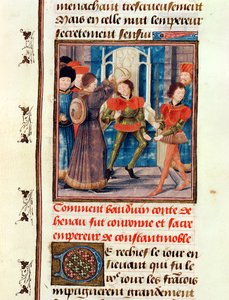 menachant trescrueusement
Mais en celle nuit lempereur
secretement senfui
Comment bauduin conte de
henau fut couronne et sacre
empereur de constantinoble
De rechief le iour en
sieuant qui fu le
iour les francois
grandement